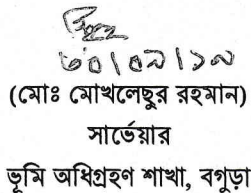 ৩০/০৯/১৯
(মোঃ মোখলেছুর রহমান)
সার্ভেয়ার
ভূমি অধিগ্রহণ শাখা, বগুড়া